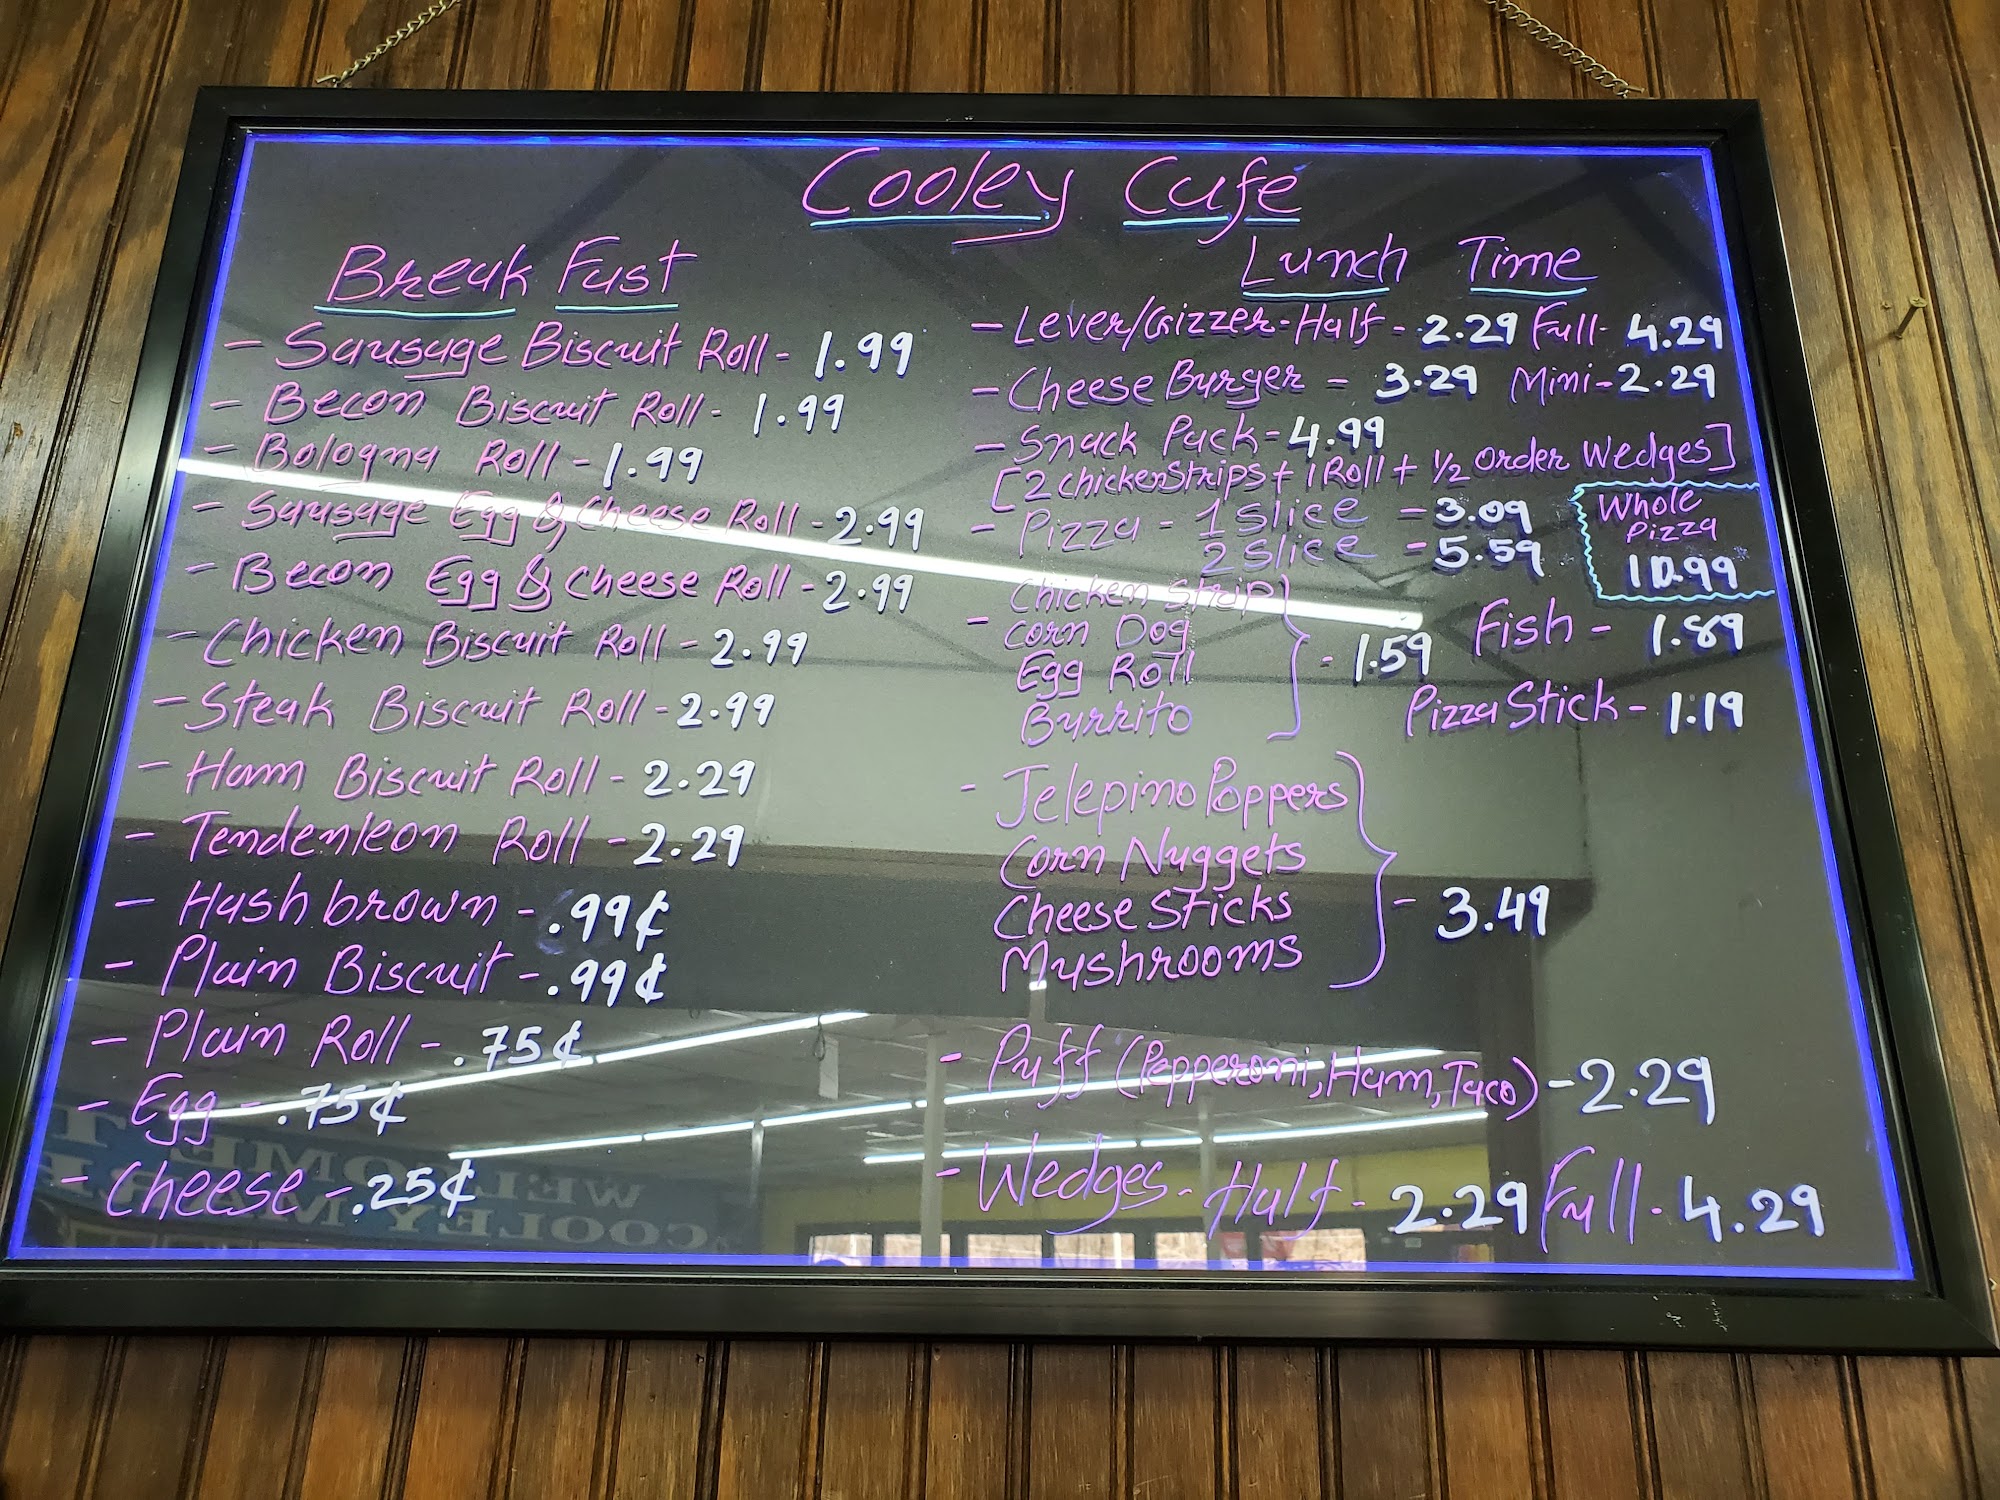 Cooley Cafe
Break Fast
- Sausage Biscuit Roll - 1.99
- Becon Biscuit Roll - 1.99
- Bologna Roll - 1.99
- Sausage Egg & Cheese Roll - 2.99
- Becon Egg & Cheese Roll - 2.99
- Chicken Biscuit Roll - 2.99
- Steak Biscuit Roll - 2.99
- Ham Biscuit Roll - 2.29
- Tendenleon Roll - 2.29
- Hash brown - .99¢
- Plain Biscuit - .99¢
- Plain Roll - .75¢
- Egg - .75¢
- Cheese - .25¢
Lunch Time
- Lever/Gizzer - Half - 2.29 Full - 4.29
- Cheese Burger - 3.29 Mini - 2.29
- Snack Pack - 4.99
[2 chicken strips + 1 Roll + ½ order Wedges]
- Pizza - 1 Slice - 3.09
2 Slice - 5.59
Whole
Pizza
10.99
- Chicken Strip
Corn Dog
Egg Roll
Burrito
- 1.59
Fish - 1.89
Pizza Stick - 1.19
- Jelepino Poppers
Corn Nuggets
Cheese Sticks
Mushrooms
- 3.49
- Puff (Pepperoni, Ham, Taco) - 2.29
- Wedges - Half - 2.29 Full - 4.29
WELCOME T
COOLEY MA